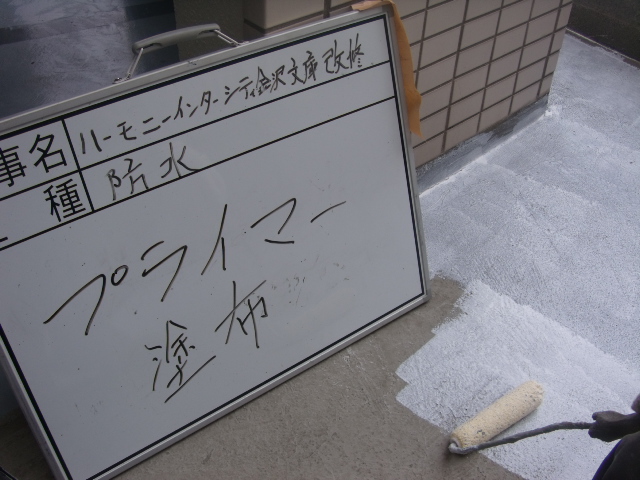 事名 ハーモニーインターシティ金沢文庫改修
種 防水
プライマー
塗布